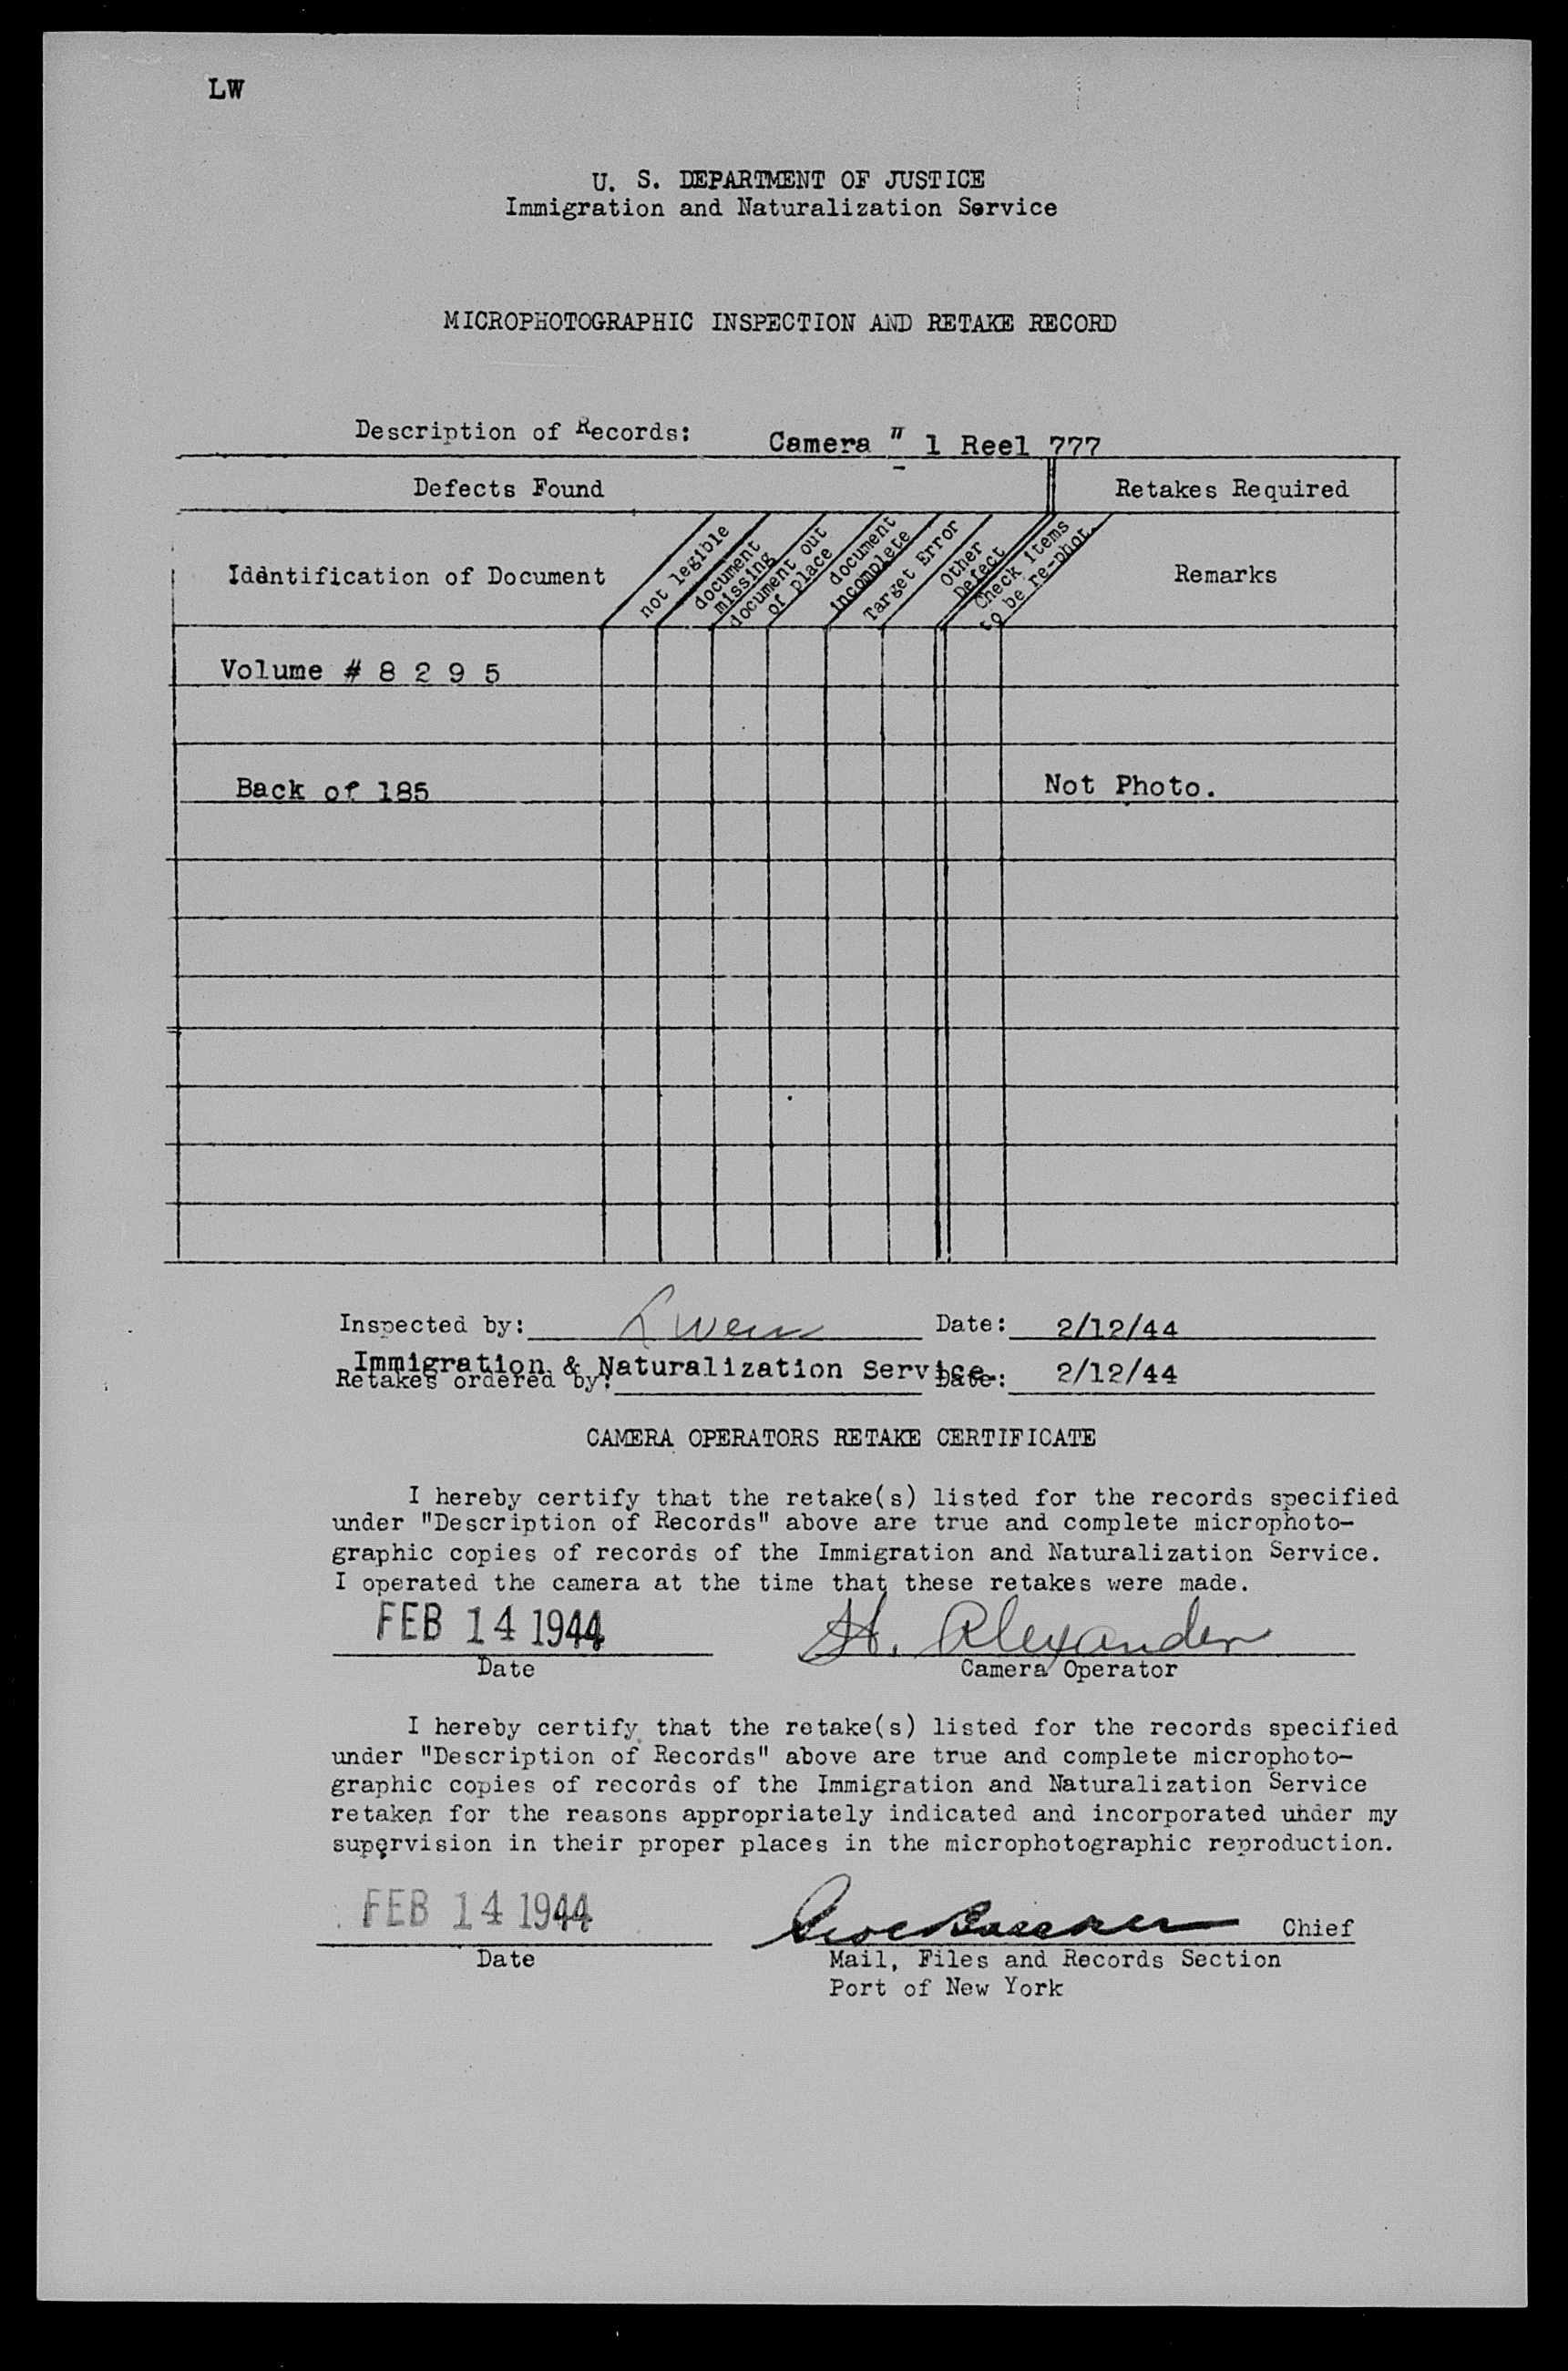 LW
U. S. DEPARTMENT OF JUSTICE
Immigration and Naturalization Service
MICROPHOTOGRAPHIC INSPECTION AND RETAKE RECORD
Description of Records: Camera # 1 Reel 777
Defects Found Retakes Required
Identification of Document
not legible
document
missing
document out
of place
document
incomplete
Target Error
Other
Defect
Check items
to be re-phot.
Remarks
Volume # 8 2 9 5
Back of 185 Not Photo.
Inspected by: Date: 2/12/44
Immigration & Naturalization Service.
Retakes ordered by: Date: 2/12/44
CAMERA OPERATORS RETAKE CERTIFICATE
I hereby certify that the retake(s) listed for the records specified
under "Description of Records" above are true and complete microphoto-
graphic copies of records of the Immigration and Naturalization Service.
I operated the camera at the time that these retakes were made.
FEB 14 1944 H. Alexander
Date Camera Operator
I hereby certify that the retake(s) listed for the records specified
under "Description of Records" above are true and complete microphoto-
graphic copies of records of the Immigration and Naturalization Service
retaken for the reasons appropriately indicated and incorporated under my
supervision in their proper places in the microphotographic reproduction.
FEB 14 1944 Chief
Date Mail, Files and Records Section
Port of New York